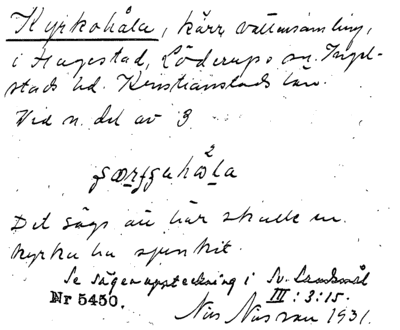 Kyrkohåla, kärr, vattensamling,
i Hagestad, Löderups sn. Ingel-
stads hd. Kristianstads län.
Vid n. del av 3
Det sägs att här skulle en
kyrka ha sjunkit.
Se sägenuppteckning i Sv. Landsmål
III : 3:15.
Nr 5450.
Nils Nilsson 1931.